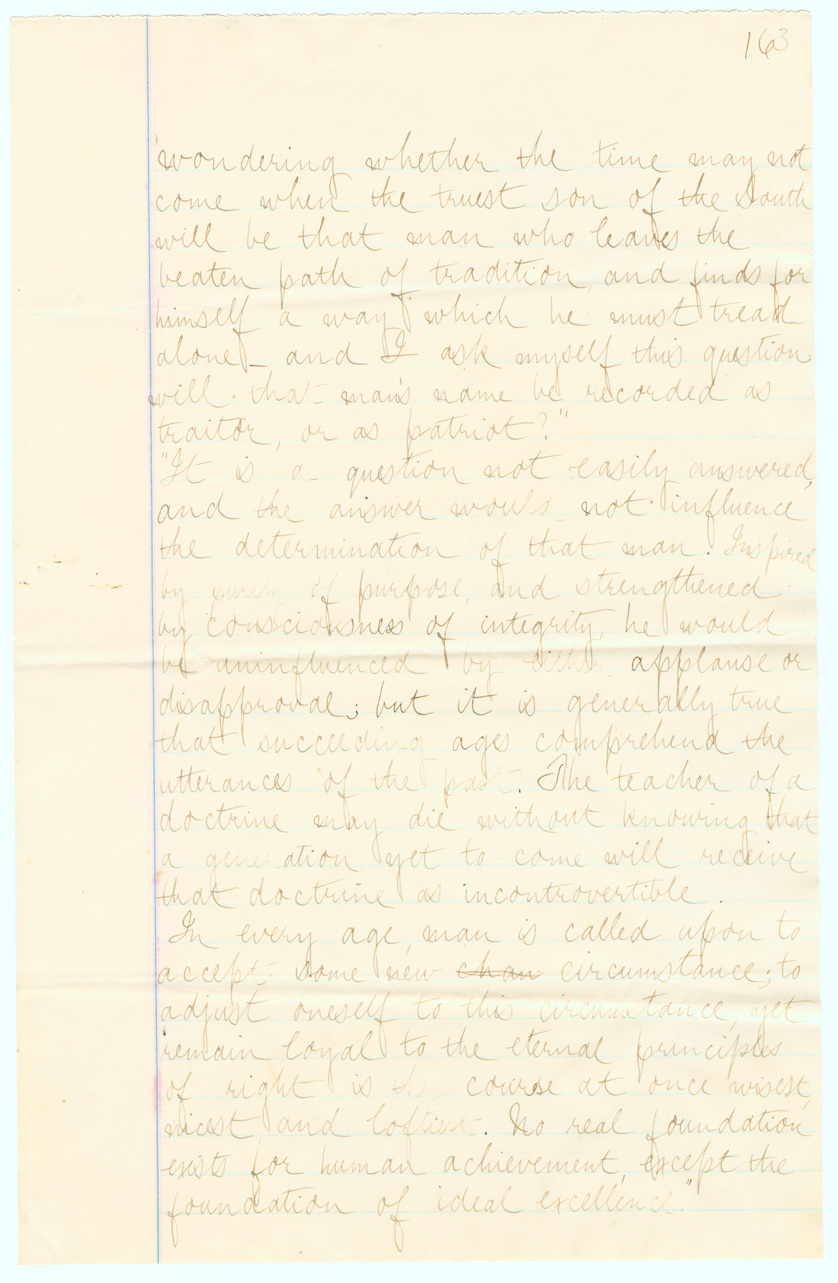 163
wondering whether the time may not
come when the truest son of the South
will be that man who leaves the
beaten path of tradition, and finds for
himself a way which he must tread
alone – and I ask myself this question
will that man's name be recorded as
traitor, or as patriot?"
"It is a question not easily answered,
and the answer would not influence
the determination of that man. Inspired
by purity of purpose, and strengthened
by consciousness of integrity, he would
be uninfluenced by either applause or
disapproval; but it is generally true
that succeeding ages comprehend the
utterances of the past. The teacher of a
doctrine may die without knowing that
a generation yet to come will receive
that doctrine as incontrovertible.
In every age, man is called upon to
accept some new chan circumstance; to
adjust oneself to this circumstance, yet
remain loyal to the eternal principles
of right is the course at once wisest,
nicest and loftiest. No real foundation
exists for human achievement, except the
foundation of ideal excellence."